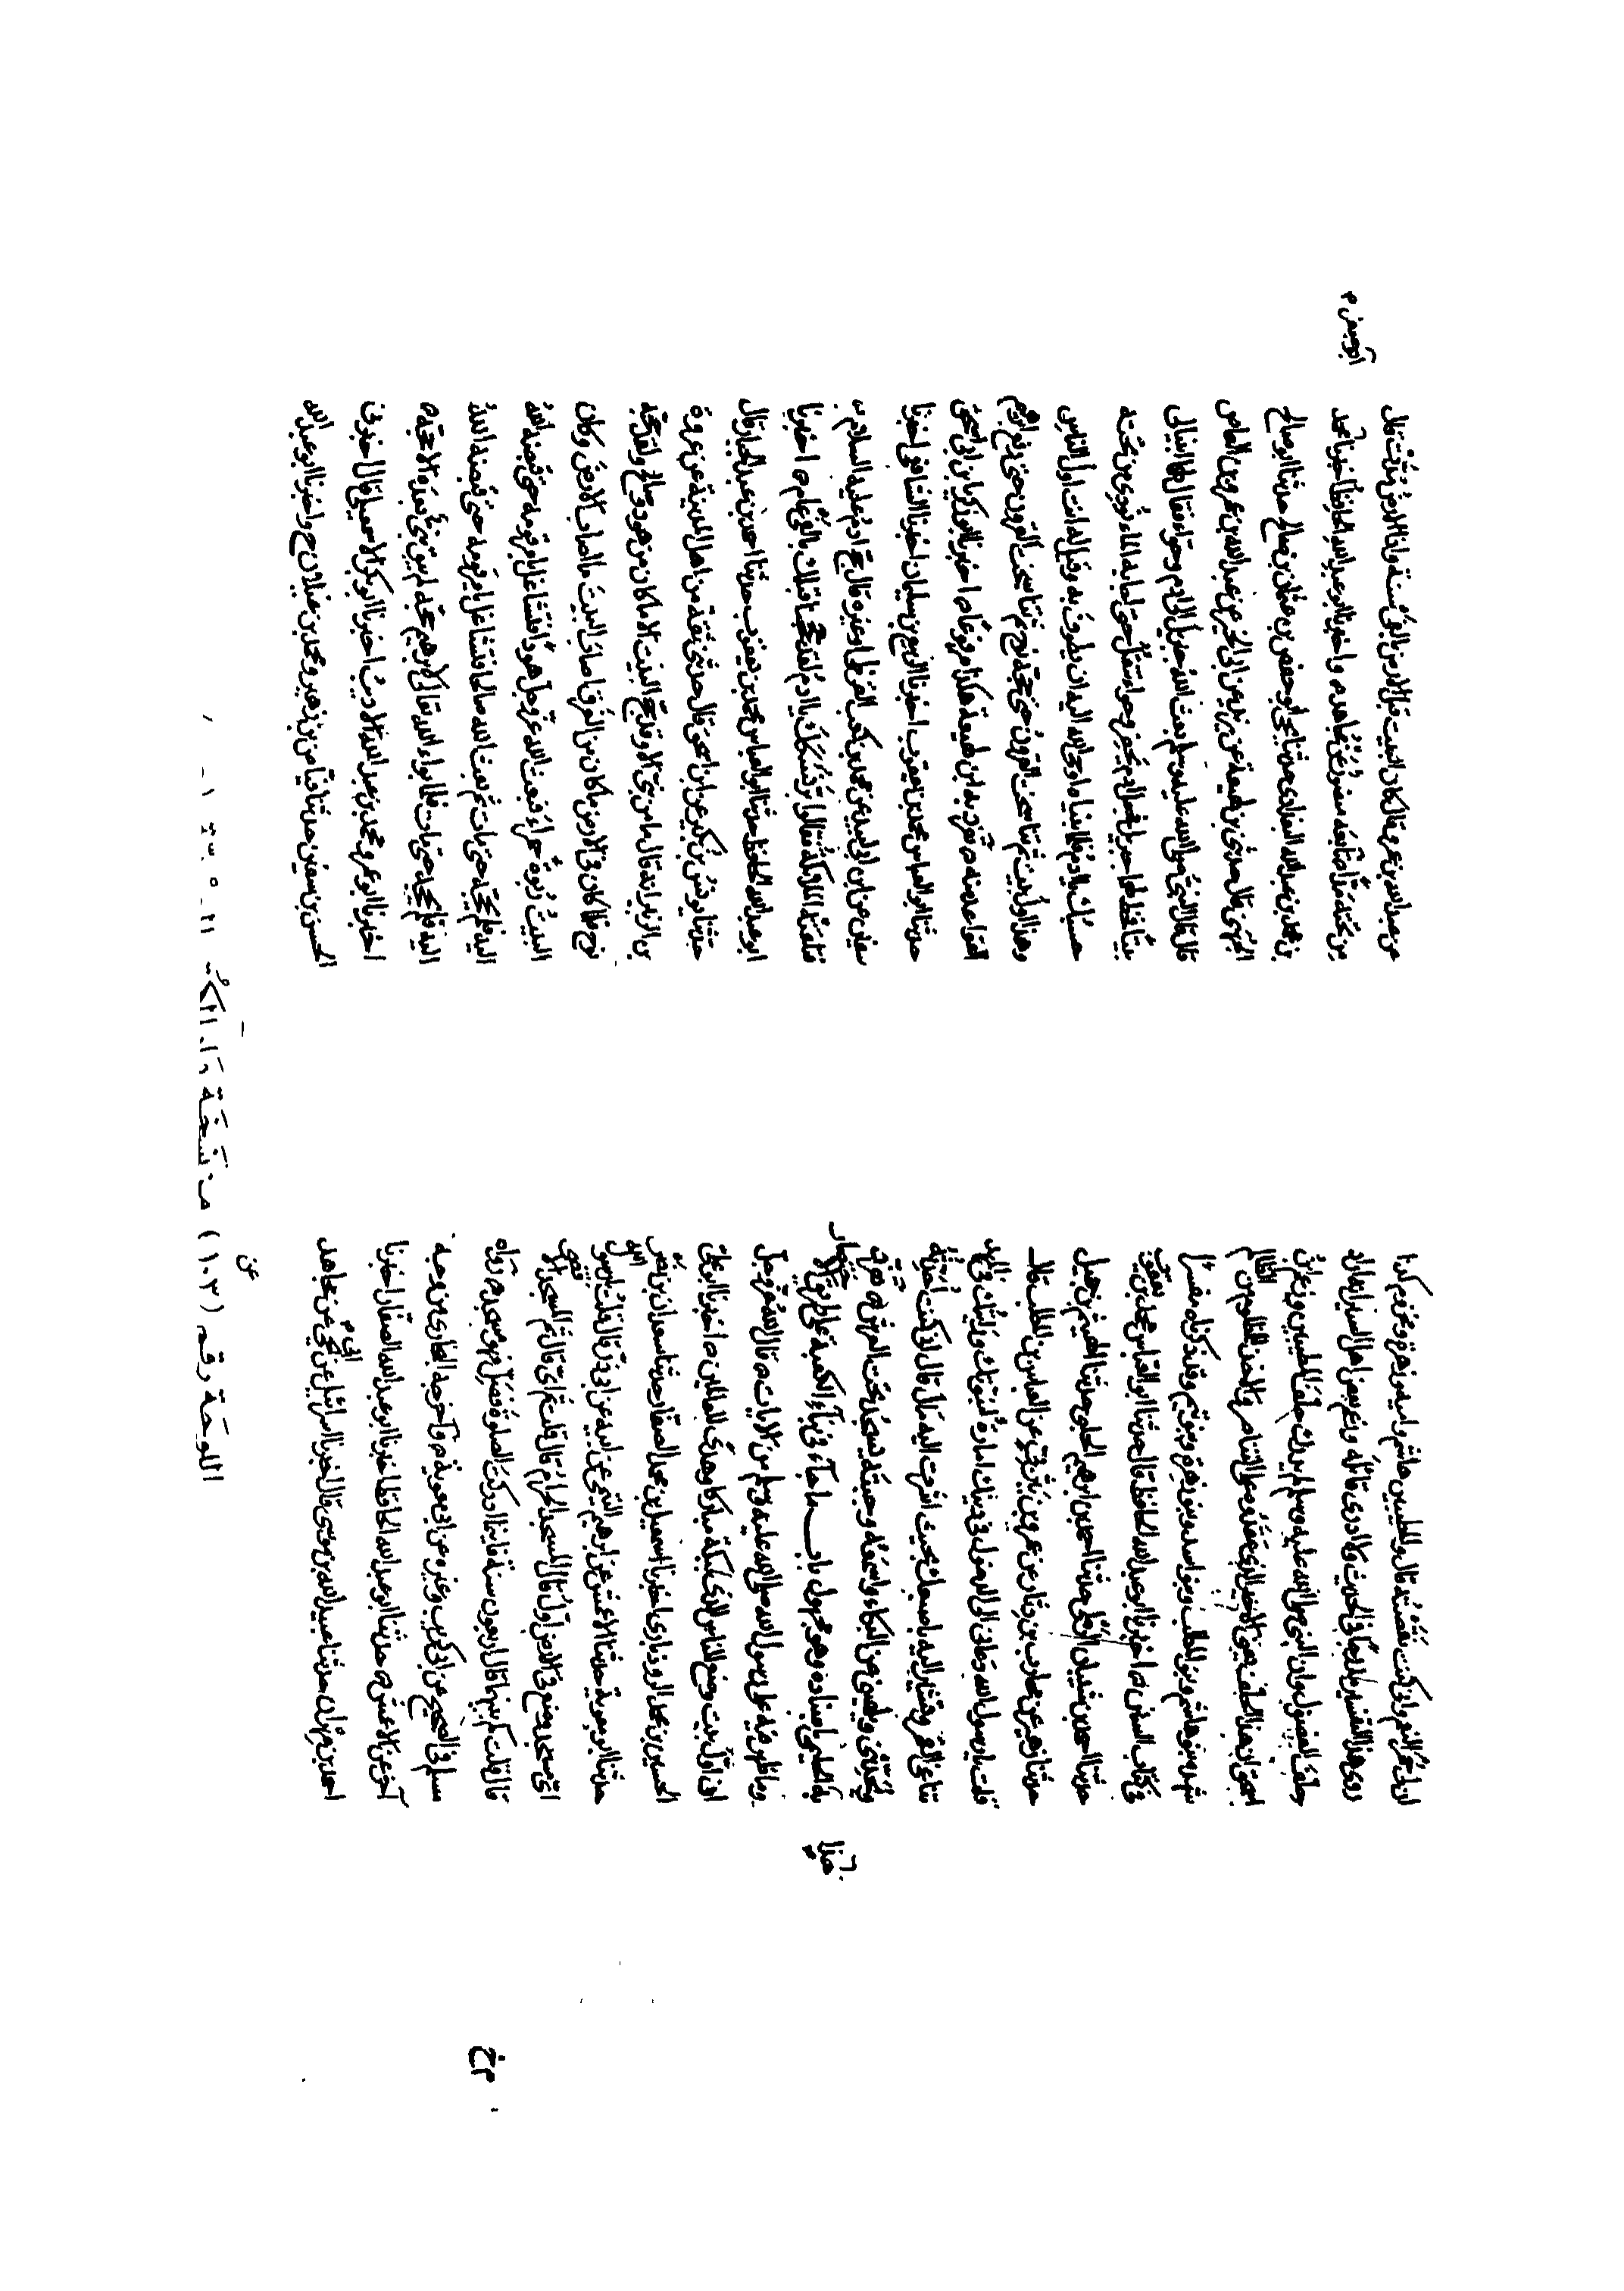 لابل حمر النعم واني كنت نقضته قال والمطيبين هاشم وامية وزهرة ومخزوم كذا
روى هذا التفسير مدرجا في الحديث ولا ادرى قائله وزعم بعض اهل السير انه اراد
حلف الفضول وان النبي صلى الله عليه وسلم لم يدرك حلف المطيبين وزعم ابن
اسحق ان هذا الحلف يعني الاخير الذي عقدوه على التناصر والاخذ للمظلوم من الظالم
شهده بنو هاشم وبنو المطلب وبنو اسد وبنو زهرة وبنو تيم وقد ذكرناه مفسرا
في كتاب السنن اخبرنا ابو عبد الله الحافظ قال حدثنا ابو العباس محمد بن يعقوب
حدثنا احمد بن شيبان الرملي حدثنا احمد بن ابرهيم الحبلي حدثنا الهيثم بن جميل
حدثنا زهير عن محارب بن دثار عن عمرو بن يثربي عن العباس بن عبد المطلب قال
قلت يا رسول الله دعاني الى الدخول في دينك امارة لنبوتك رايتك في المهد
تناغي القمر وتشير اليه باصبعك فحيث اشرت اليه مال قال اني كنت احدثه
ويحدثني ويلهيني عن البكاء واسمع وجبته يسجد تحت العرش تفرد
به الحلبي باسناده وهو مجهول باب ما جاء في بناء الكعبة على طريق الاختصار
وما ظهر فيه على رسول الله صلى الله عليه وسلم من الايات قال الله عز وجل
ان اول بيت وضع للناس للذي ببكة مباركا وهدى للعالمين اخبرنا ابو علي
الحسين بن محمد الروذباري اخبرنا اسمعيل بن محمد الصفار حدثنا سعدان بن نصر
حدثنا ابو معوية حدثنا الاعمش عن ابرهيم التيمي عن ابيه عن ابي ذر قال قلت يا رسول الله
اي مسجد وضع في الارض اول قال المسجد الحرام قال قلت ثم اي قال ثم المسجد الاقصى
قال قلت كم بينهما قال اربعون سنة فاينما ادركتك الصلوة فصل فهو مسجد رواه
مسلم في الصحيح عن ابي كريب وغيره عن ابي معوية واخرجه البخاري من وجه
اخر عن الاعمش حدثنا ابو عبد الله الحافظ اخبرنا ابو عبد الله الصفار اخبرنا
احمد بن مهران حدثنا عبيد الله بن موسى قال اخبرنا اسرائيل عن ابي يحيى عن مجاهد
عن عبد الله بن عمرو قال كان البيت قبل الارض بالفي سنة واذا الارض مدت قال
من تحته مدا تابعه منصور عن مجاهد واخبرنا ابو عبد الله الحافظ اخبرنا ابو جعفر محمد
بن محمد بن عبد الله البغدادي حدثنا يحيى بن عثمن بن صالح حدثنا ابو صالح
الجهني قال حدثني ابن لهيعة عن يزيد عن ابي الخير عن عبد الله بن عمرو بن العاص
قال قال النبي صلى الله عليه وسلم بعث الله جبريل الى ادم وحوا فقال لهما ابنيا لي
بيتا فخط لهما جبريل فجعل ادم يحفر وحوا تنقل حتى اجابه الماء نودي من تحته
حسبك يا ادم فلما بنياه اوحى الله اليه ان يطوف به وقيل له انت اول الناس
وهذا اول بيت ثم تناسخت القرون حتى حجه نوح ثم تناسخت القرون حتى رفع ابرهيم
القواعد منه تفرد به ابن لهيعة هكذا مرفوعا اخبرنا ابو زكريا بن ابي اسحق
حدثنا ابو العباس محمد بن يعقوب اخبرنا الربيع بن سليمان اخبرنا الشافعي اخبرنا
سفين عن ابن ابي لبيد عن محمد بن كعب القرظي او غيره قال حج ادم عليه السلام
فلقيته الملائكة فقالوا بر نسكك يا ادم لقد حججنا قبلك بالفي عام اخبرنا
ابو عبد الله الحافظ حدثنا ابو العباس محمد بن يعقوب حدثنا احمد بن عبد الجبار قال
حدثنا يونس بن بكير عن ابن اسحق قال حدثني ثقة من اهل المدينة عن عروة
بن الزبير انه قال ما من نبي الا وقد حج البيت الا ما كان من هود وصالح ولقد حجه
نوح فلما كان في الارض ما كان من الغرق اصاب البيت ما اصاب الارض وكان
البيت ربوة حمراء فبعث الله عز وجل هودا فتشاغل بامر قومه حتى قبضه الله
اليه فلم يحجه حتى مات ثم بعث الله صالحا فتشاغل بامر قومه حتى قبضه الله
اليه فلم يحجه حتى مات فلما بواه الله تعالى لابرهيم حجه لم يبق نبي بعده الا حجه
اخبرنا ابو عمرو محمد بن عبد الله الاديب اخبرنا ابو بكر الاسمعيلي قال اخبرني
الحسن بن سفين حدثنا فياض بن زهير ومحمود بن غيلان ح واخبرنا ابو عبد الله
اللوحة رقم (١٠٣) من نسخة